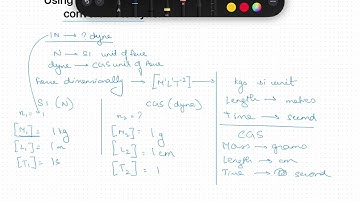 Using
1N → ? dyne
N → SI unit of force
dyne → CGS unit of force
Force dimensionally → [M¹L¹T⁻²] →
SI (N)
n₁ = 1
[M₁] = 1 kg
[L₁] = 1 m
[T₁] = 1s
CGS (dyne)
n₂ = ?
[M₂] = 1 g
[L₂] = 1 cm
[T₂] = 1
kgs si unit
Length → metres
Time → second
CGS
Mass → grams
Length → cm
Time → second